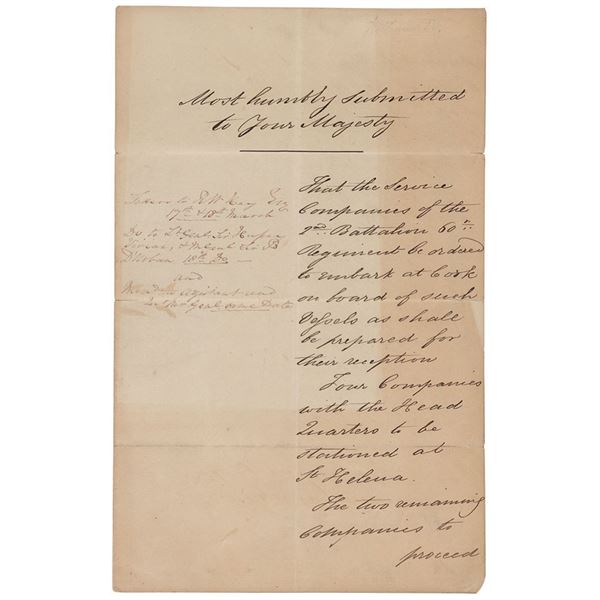 Most humbly submitted
to Your Majesty
Letters to R W Hay Esq
17th & 18th March
Do to Lt Genl Sir
18th Do
and
Adjutant and
Genl same Date
That the Service
Companies of the
2nd Battalion 60th
Regiment be ordered
to embark at Cork
on board of such
Vessels as shall
be prepared for
their reception
Four Companies
with the Head
Quarters to be
stationed at
St Helena.
The two remaining
Companies to
proceed